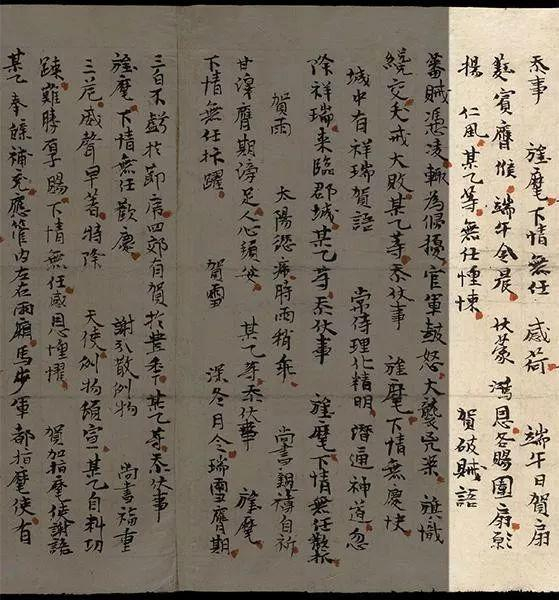 忝事 旌麾下情無任 感荷 端午日賀扇
蕤賓膺候端午令晨 伏蒙 鴻恩各賜團扇願
揚 仁風某乙等無任惶悚 賀破賊語
蕃賊憑凌輒為侵擾官軍鼓怒大襲兇渠旌
纔交 戎大敗某乙等忝伏事 旌麾下情無慶快
城中有祥瑞賀語 常侍理化精明潛通神道忽
除祥瑞來臨郡城某乙等忝伏事 旌麾下情無任歡
賀雨 太陽愆席時雨稍乖 尚書親禱自祈
甘澤膺期滂足人心頒安 某乙等忝伏事 旌麾
下情無任抃躍 賀雪 深冬月令瑞雪膺期
三白不虧於節席四郊自賀於豊年某乙等忝伏事
旌麾下情無任歡慶 謝 散例物 尚書福重
三危威聲早著特降 天使例物頒宣某乙自料功
踈難勝厚賜下情無任感恩惶懼 賀加指麾使謝語
某乙奉牒補充應管內左右兩廂馬步軍都指麾使有